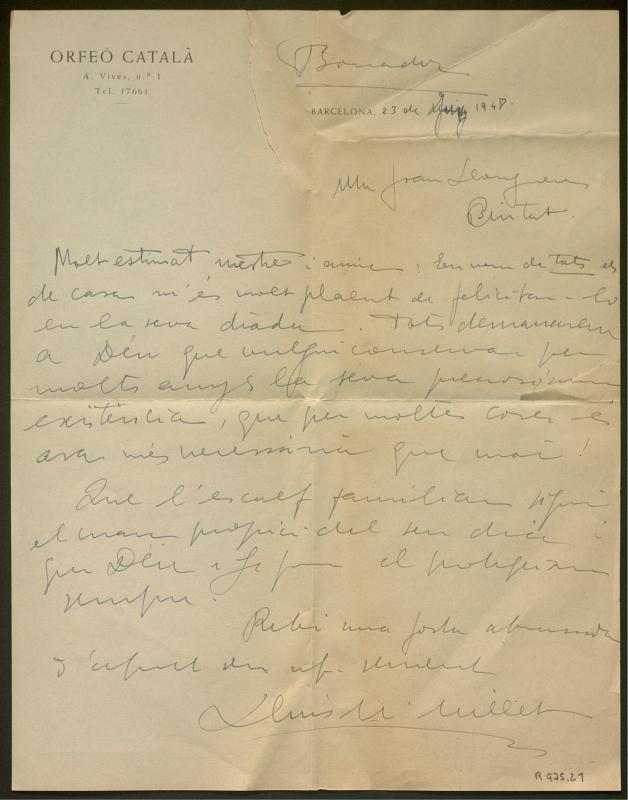 ORFEÓ CATALÀ
A. Vives, n.º 1
Tel. 17661
BARCELONA, 23 de Juny 1948.
Joan Llongueres
Molt estimat mestre i amic: En nom de tots els
de casa m'és molt plaent de felicitar-lo
en la seva diada. Tots demanarem
a Déu que vulgui conservar per
molts anys la seva preciosíssima
existència, que per moltes coses és
ara més necessària que mai!
Que l'escalf familiar sigui
el marc propici del seu dia i
que Déu el protegeixin
sempre.
Rebi una forta abraçada
d'afecte del
Lluís Mª Millet
R 975.21